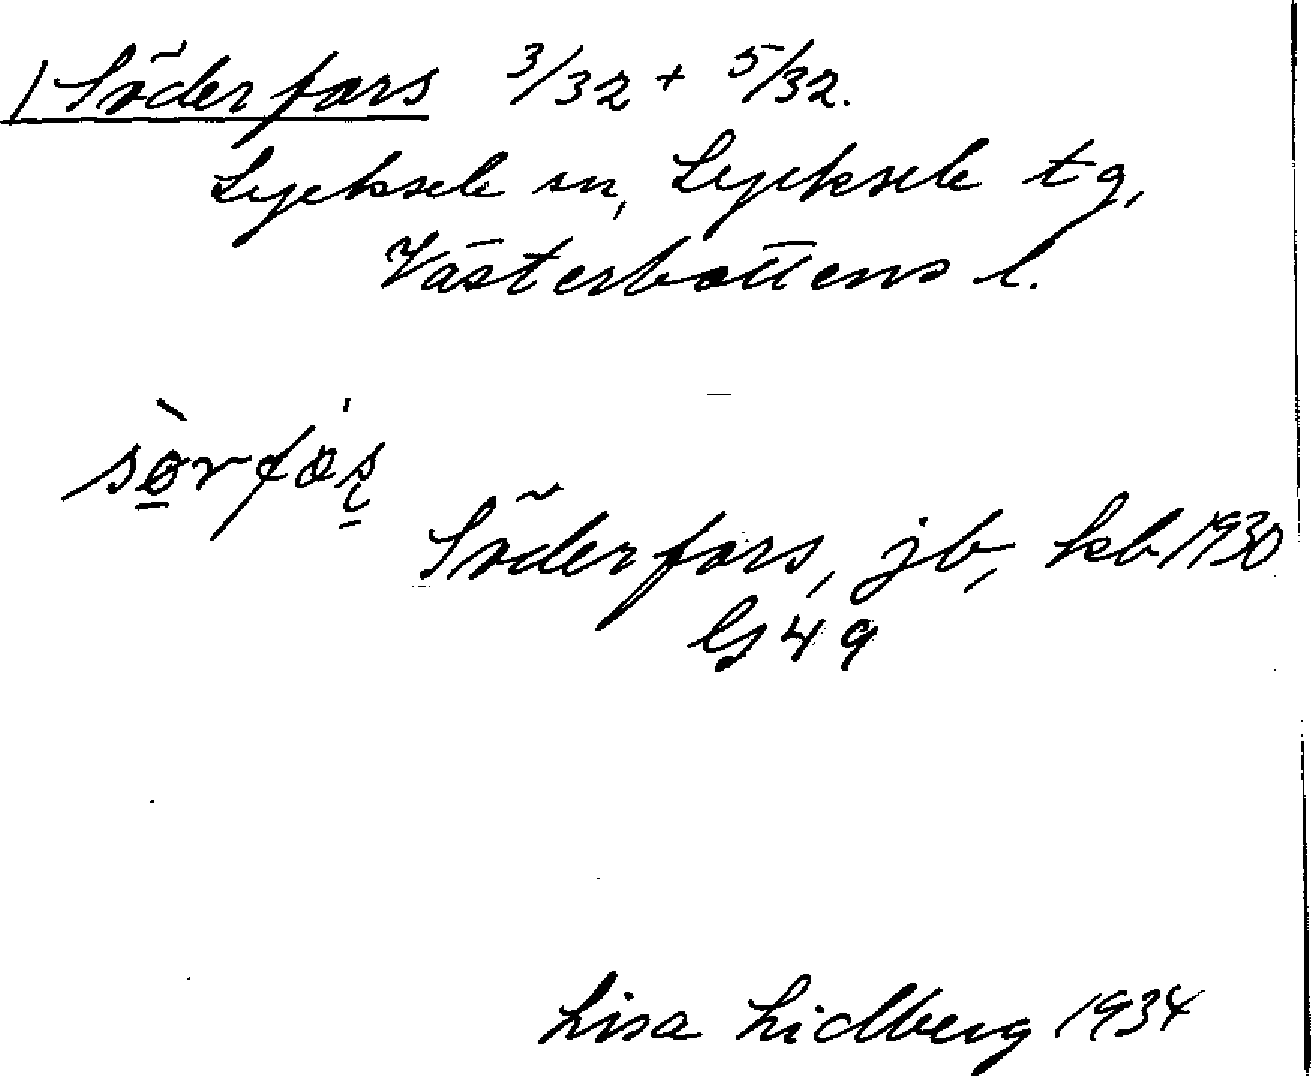 /Söderfors 3/32 + 5/32.
Lycksele sn, Lycksele tg,
Västerbottens l.
sø̱̀rfòʂ̱
Söderfors, jb, kb 1930
GS 49
Lisa Lidberg 1934